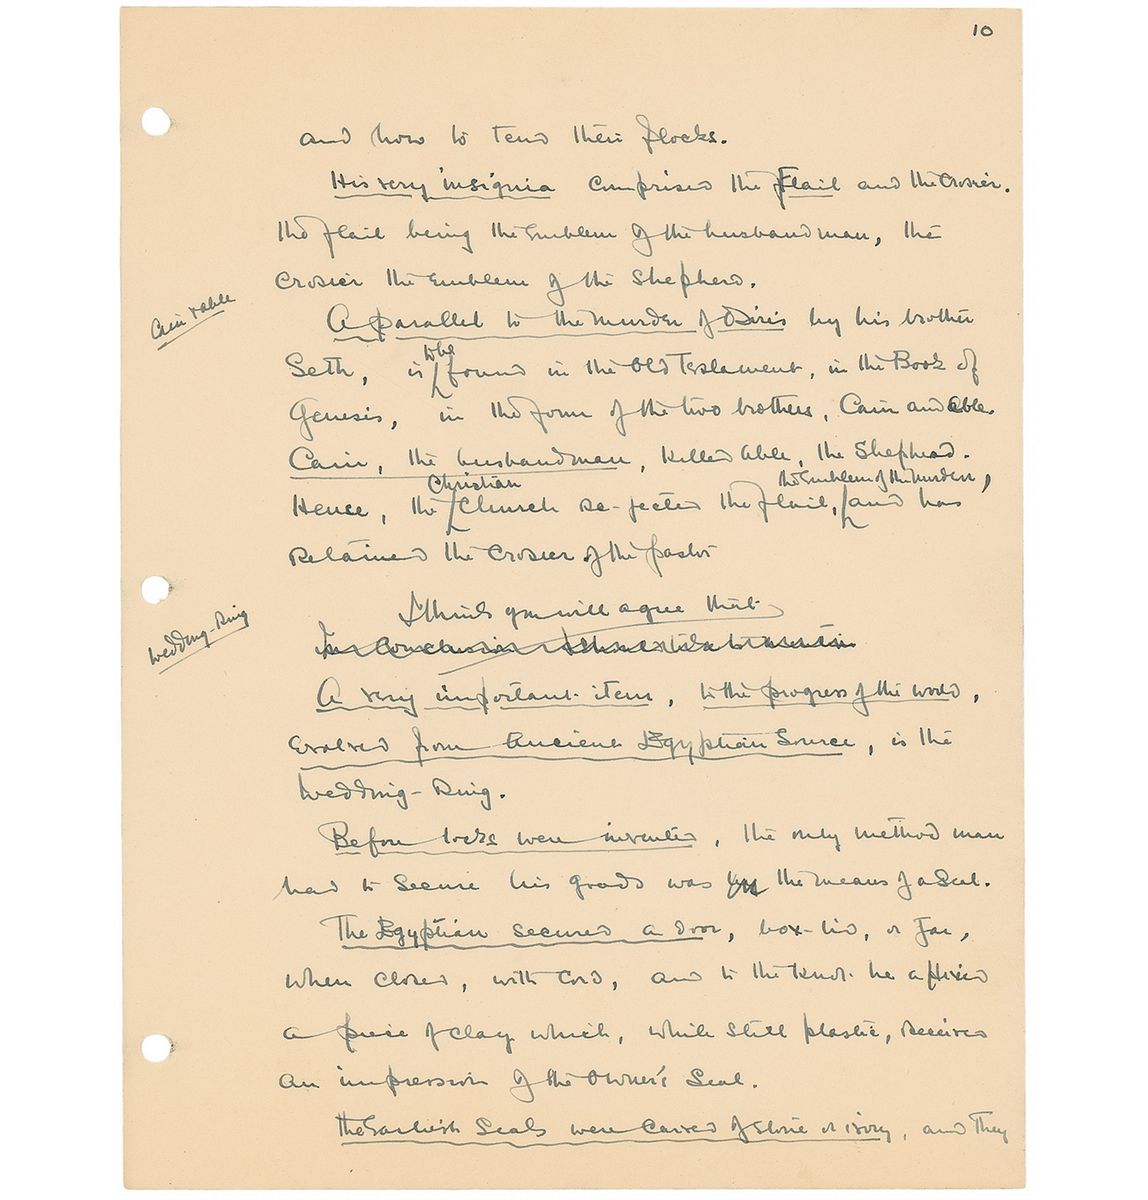 10
and how to tend their flocks.
His very insignia comprised the Flail and the Crosier.
the flail being the Emblem of the husbandman, the
Crosier the Emblem of the Shepherd.
Cain & Able
A parallel to the murder of Osiris by his brother
to be
Seth, is found in the Old Testament, in the Book of
Genesis, in the form of the two brothers, Cain and Able.
Cain, the husbandman, killed Able, the Shepherd.
Christian the Emblem of the murderer,
Hence, the Church re-jected the flail, and has
retained the Crosier of the pastor
I think you will agree that
Wedding-Ring
In Conclusion
A very important item, to the progress of the world,
Evolved from Ancient Egyptian Source, is the
Wedding-Ring.
Before locks were invented, the only method man
had to secure his goods was by the means of a Seal.
The Egyptian secured a door, box-lid, or Jar,
when closed, with Cord, and to the knot he affixed
a piece of clay which, while still plastic, received
an impression of the Owner's Seal.
the Earliest Seals were carved of stone or ivory, and They